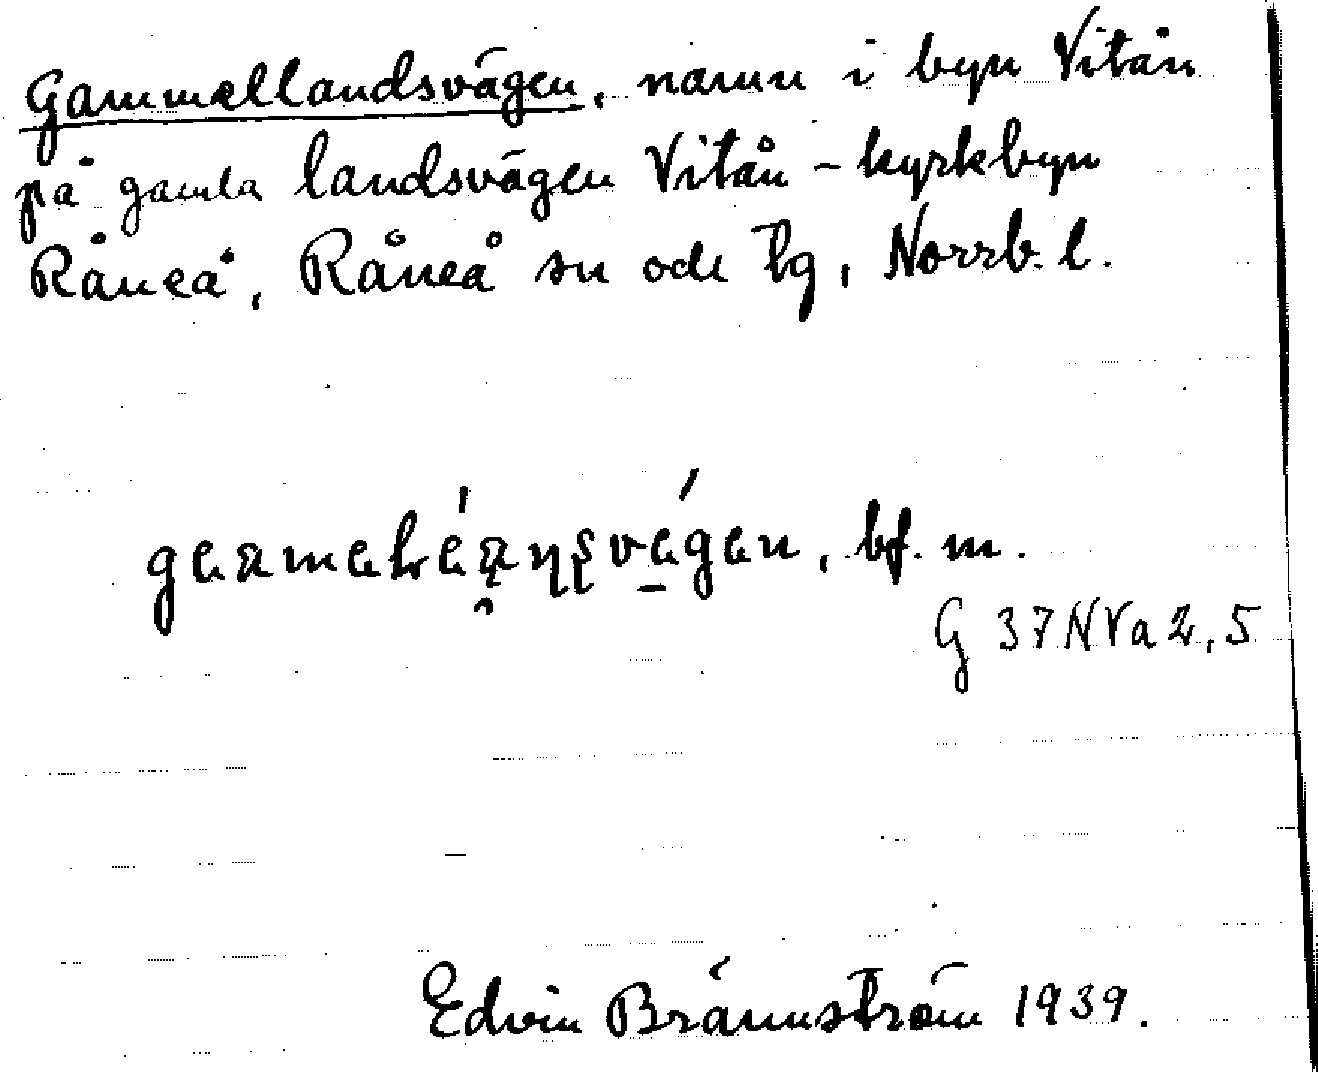 Gammellandsvägen, namn i byn Vitån
på gamla landsvägen Vitån - kyrkbyn
Råneå, Råneå sn och tg, Norrb. l.
bf. m.
G 37 N V a 2, 5
Edvin Brännström 1939.